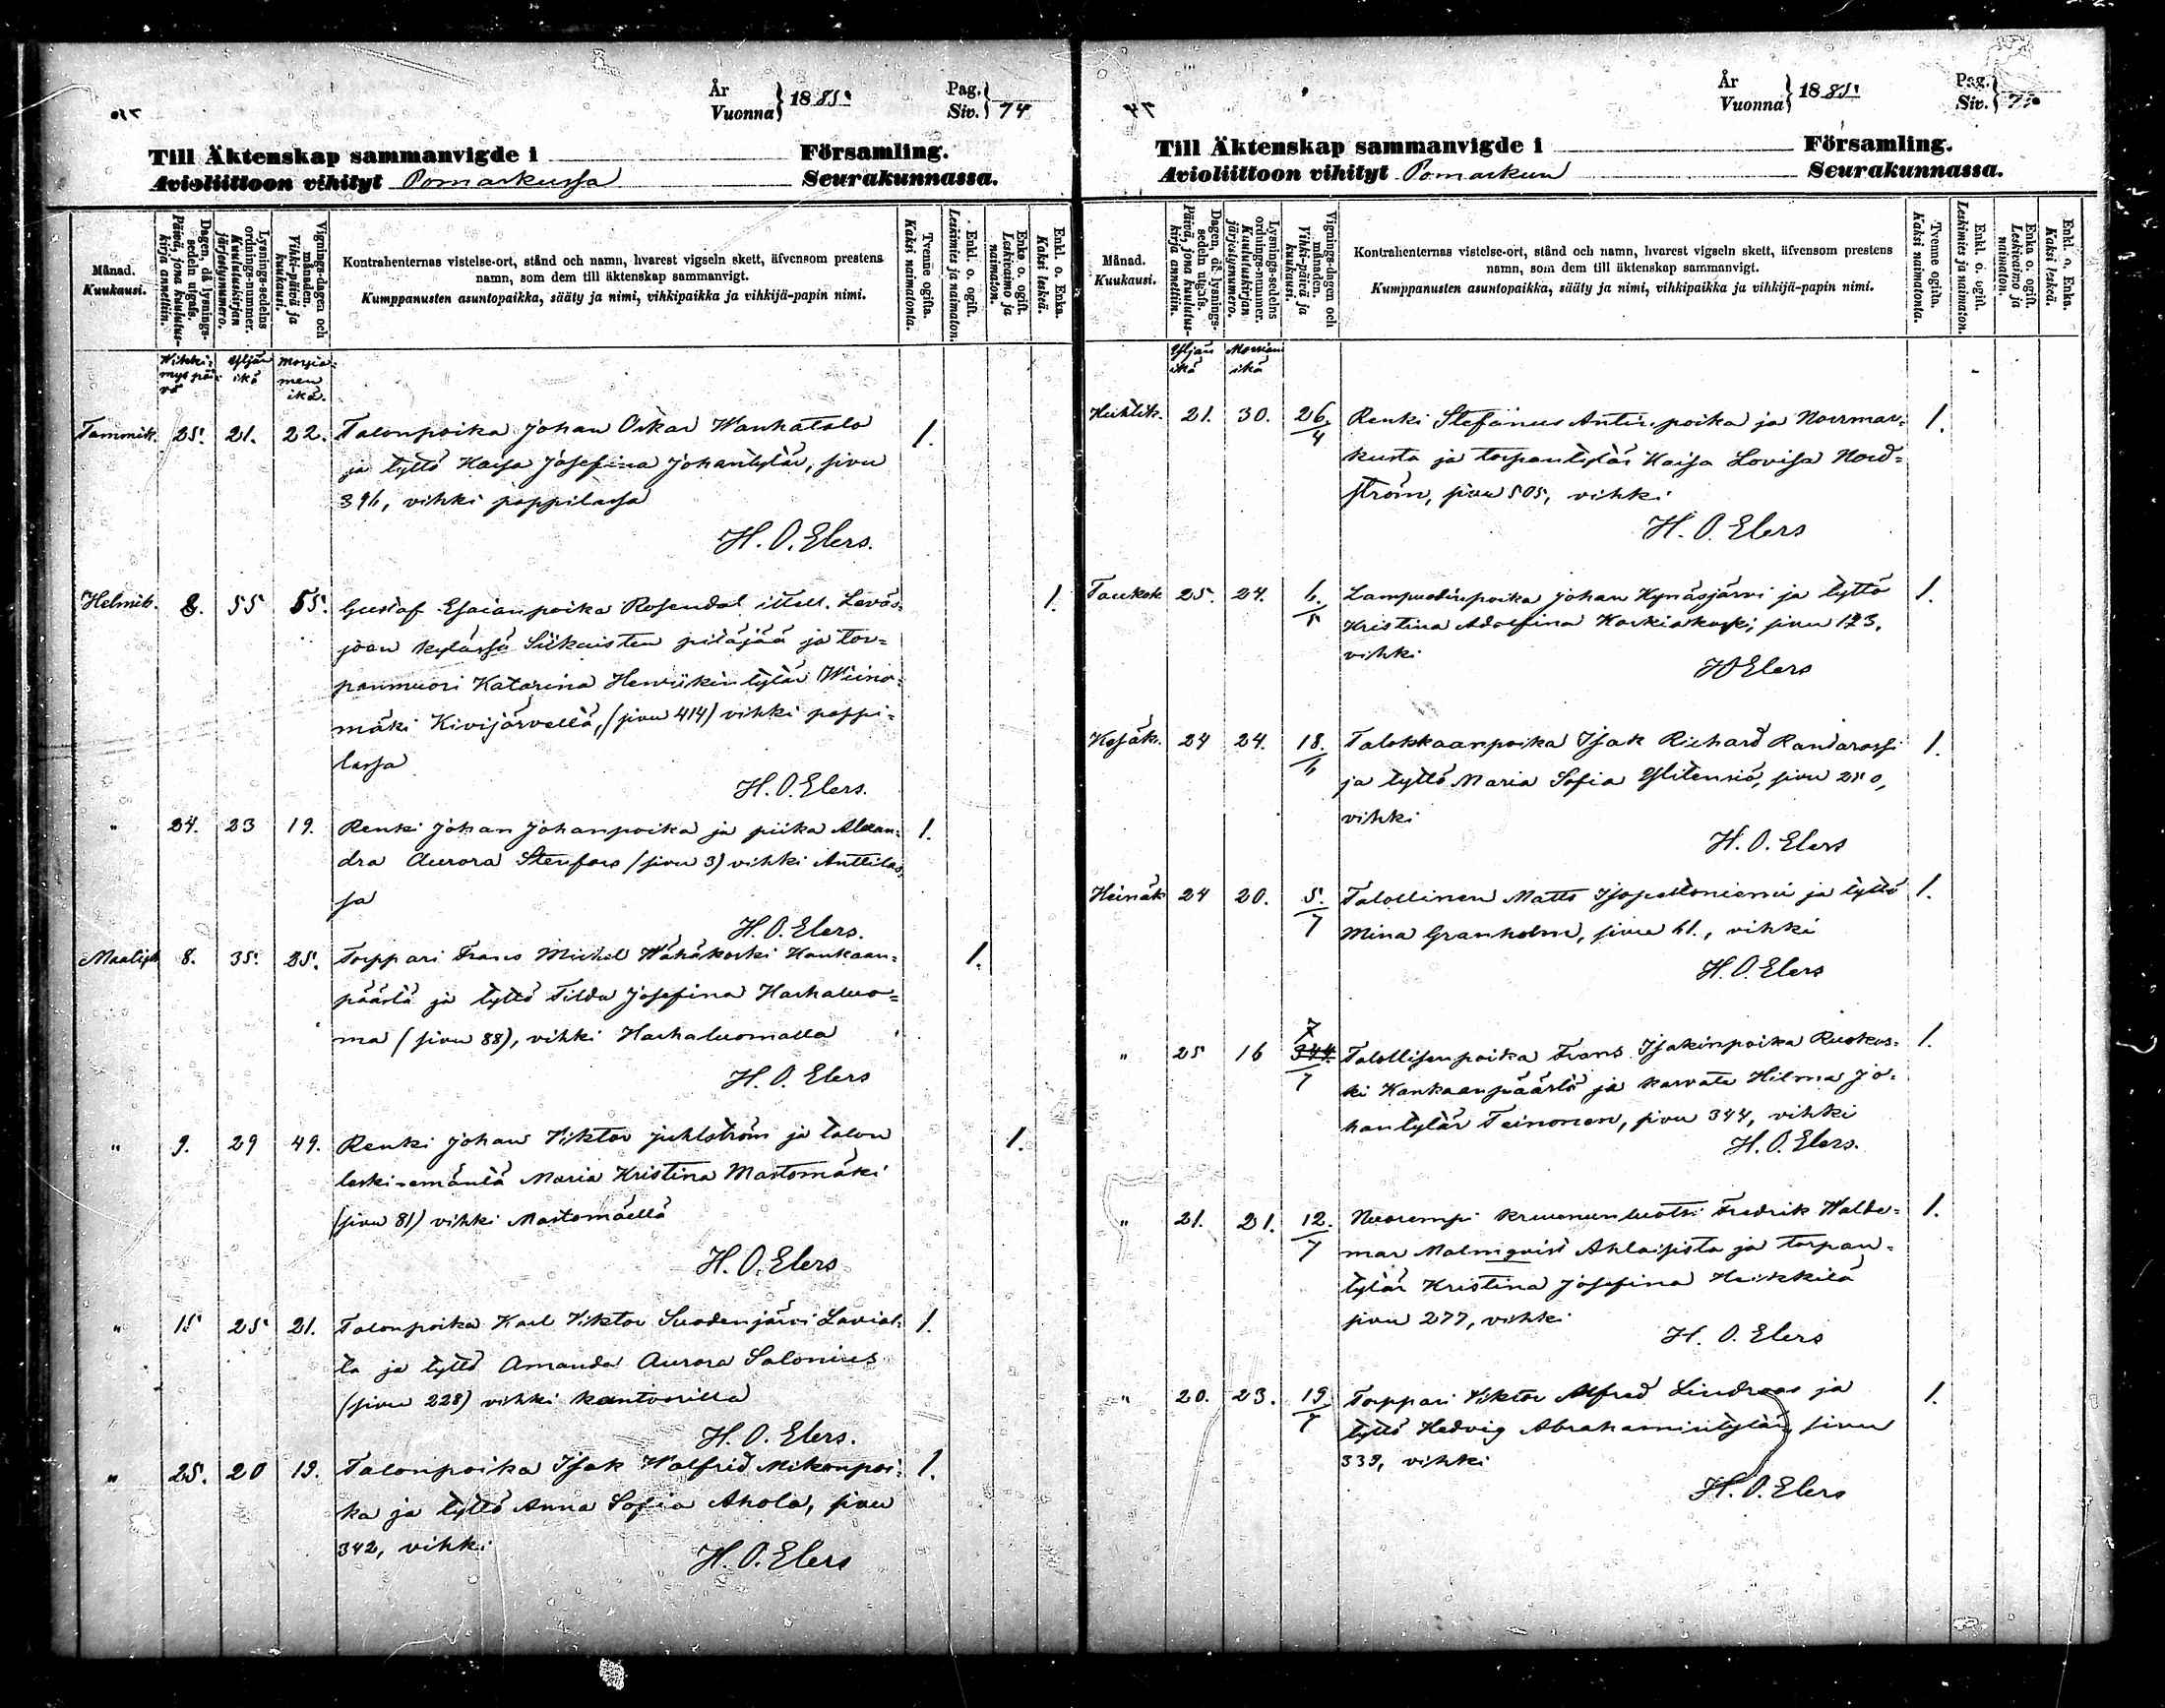 År
Vuonna} 1885.
Pag.
Siv.} 74
Till Äktenskap sammanvigde i Församling.
Avioliittoon vihityt Pomarkussa Seurakunnassa.
Månad.
Kuukausi.
Dagen, då lysnings-sedeln utgafs.
Päivä, jona kuulutus-kirja annettiin.
Lysnings-sedelns ordnings-nummer.
Kuulutuskirjan järjestysnumero.
Vignings-dagen och månaden.
Vihki-päivä ja kuukausi.
Kontrahenternas vistelse-ort, stånd och namn, hvarest vigseln skett, äfvensom prestens
namn, som dem till äktenskap sammanvigt.
Kumppanusten asuntopaikka, sääty ja nimi, vihkipaikka ja vihkijä-papin nimi.
Tvenne ogifta.
Kaksi naimatonta.
Enkl. o. ogift.
Leskimies ja naimaton.
Enka o. ogift.
Leskivaimo ja naimaton.
Enkl. o. Enka.
Kaksi leskeä.
Wihki-
mys päi-
vä
Yljän
ikä
Morsia-
men
ikä.
Tammik. 25. 21. 22. Talonpoika Johan Oskar Wanhatalo 1.
ja tyttö Kaisa Josefina Johantytär, sivu
396, vihki pappilassa
H. O. Elers.
Helmik. 8. 55 55. Gustaf Esaianpoika Rosendal itsell. Leväs- 1.
joen kylässä Siikaisten pitäjää ja tor-
panmuori Katarina Henrikintytär Wiina-
mäki Kivijärvellä, (sivu 414) vihki pappi-
lassa
H. O. Elers.
" 24. 23 19. Renki Johan Johanpoika ja piika Alexan- 1.
dra Aurora Stenfors (sivu 3) vihki Anttilas-
sa
H. O. Elers.
Maalisk 8. 35. 25. Torppari Frans Michel Wähäkoski Kankaan- 1.
päästä ja tyttö Tilda Josefina Harhaluo-
ma (sivu 88), vihki Harhaluomalla
H. O. Elers
" 9. 29 49. Renki Johan Viktor Juhlström ja talon 1.
leski-emäntä Maria Kristina Mastomäki
(sivu 81) vihki Mastomäellä
H. O. Elers
" 15 25 21. Talonpoika Karl Viktor Suodenjärvi Lavias- 1.
ta ja tyttö Amanda Aurora Salonius
(sivu 228) vihki kanttorilla
H. O. Elers.
" 25. 20 19. Talonpoika Isak Walfrid Mikonpoi- 1.
ka ja tyttö Anna Sofia Ahola, sivu
342, vihki
H. O. Elers
År
Vuonna} 1885.
Pag.
Siv.} 75
Till Äktenskap sammanvigde i Församling.
Avioliittoon vihityt Pomarkun Seurakunnassa.
Månad.
Kuukausi.
Dagen, då lysnings-sedeln utgafs.
Päivä, jona kuulutus-kirja annettiin.
Lysnings-sedelns ordnings-nummer.
Kuulutuskirjan järjestysnumero.
Vignings-dagen och månaden.
Vihki-päivä ja kuukausi.
Kontrahenternas vistelse-ort, stånd och namn, hvarest vigseln skett, äfvensom prestens
namn, som dem till äktenskap sammanvigt.
Kumppanusten asuntopaikka, sääty ja nimi, vihkipaikka ja vihkijä-papin nimi.
Tvenne ogifta.
Kaksi naimatonta.
Enkl. o. ogift.
Leskimies ja naimaton.
Enka o. ogift.
Leskivaimo ja naimaton.
Enkl. o. Enka.
Kaksi leskeä.
Yljän
ikä
Morsiam
ikä
Huhtik. 21. 30. 26/4 Renki Stefanus Antinpoika ja Norrmar- 1.
kusta ja torpantytär Kaisa Lovisa Nord-
ström, sivu 505, vihki
H. O. Elers
Toukok 25. 24. 6./5 Lampuodinpoika Johan Kynäsjärvi ja tyttö 1.
Kristina Adolfina Koskiakoski, sivu 173,
vihki
HO Elers
Kesäk. 24 24. 18./6 Talokkaanpoika Isak Richard Randarossi 1.
ja tyttö Maria Sofia Ylitensiö, sivu 250,
vihki
H. O. Elers
Heinäk 24 20. 5./7 Talollinen Matts Isopettoniemi ja tyttö 1.
Mina Granholm, sivu 61., vihki
H. O. Elers
" 25 16 7/7 Talollisenpoika Frans Isakinpoika Ruokos- 1.
ki Kankaanpäästä ja kasvate Hilma Jo-
hantytär Teinonen, sivu 344, vihki
H. O. Elers.
" 21. 21. 12./7 Nuorempi kruununluotsi Fredrik Walde- 1.
mar Malmqvist Ahlaisista ja torpan-
tytär Kristina Josefina Heikkilä
sivu 277, vihki
H. O. Elers
" 20. 23. 19/7 Torppari Viktor Alfred Lindroos ja 1.
tyttö Hedvig Abrahamintytär, sivu
339, vihki
H. O. Elers